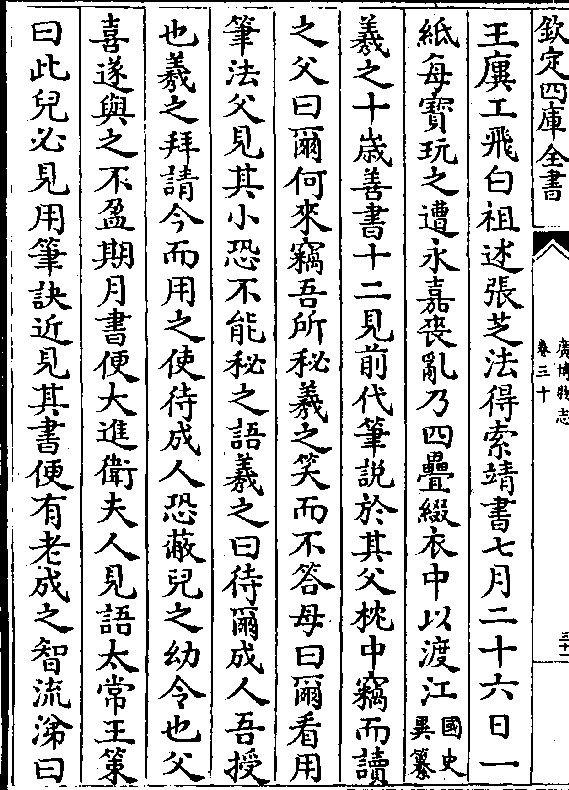 欽定四庫全書
廣博物志
卷三十
三十一
王廙工飛白祖述張芝法得索靖書七月二十六日一
紙每寶玩之遭永嘉喪亂乃四疊綴衣中以渡江國史異纂
羲之十歲善書十二見前代筆説於其父枕中竊而讀
之父曰爾何來竊吾所秘羲之笑而不答母曰爾看用
筆法父見其小恐不能秘之語羲之曰待爾成人吾授
也羲之拜請今而用之使待成人恐蔽兒之幼令也父
喜遂與之不盈期月書便大進衛夫人見語太常王策
曰此兒必見用筆訣近見其書便有老成之智流涕曰